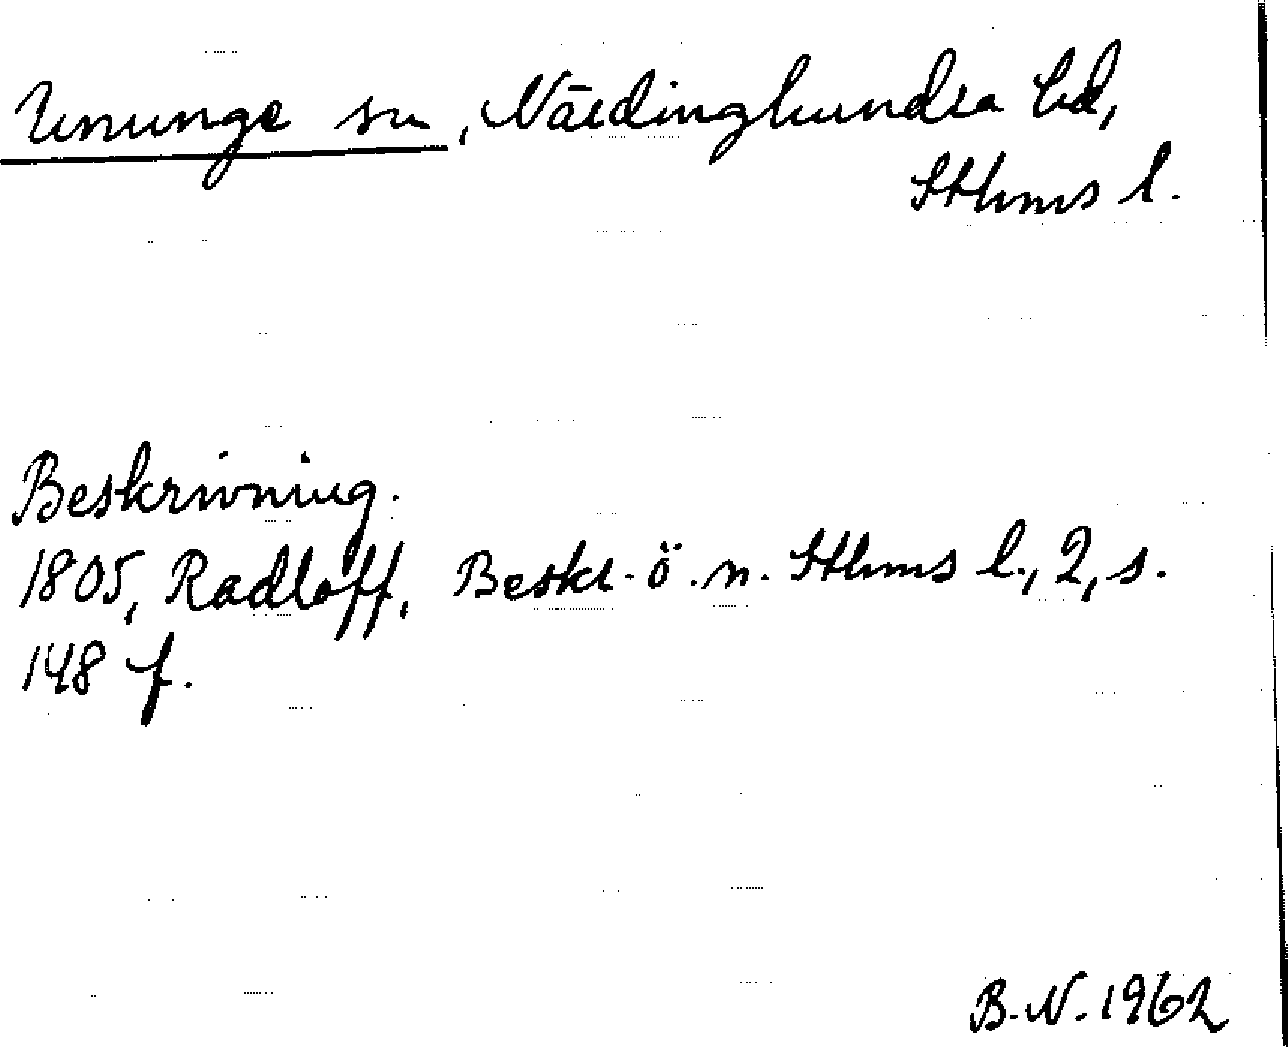 Ununge sn, Närdinghundra hd,
Sthms l.
Beskrivning.
1805, Radloff, Beskr. ö. n. Sthms l., 2, s.
148 f.
B. N. 1962